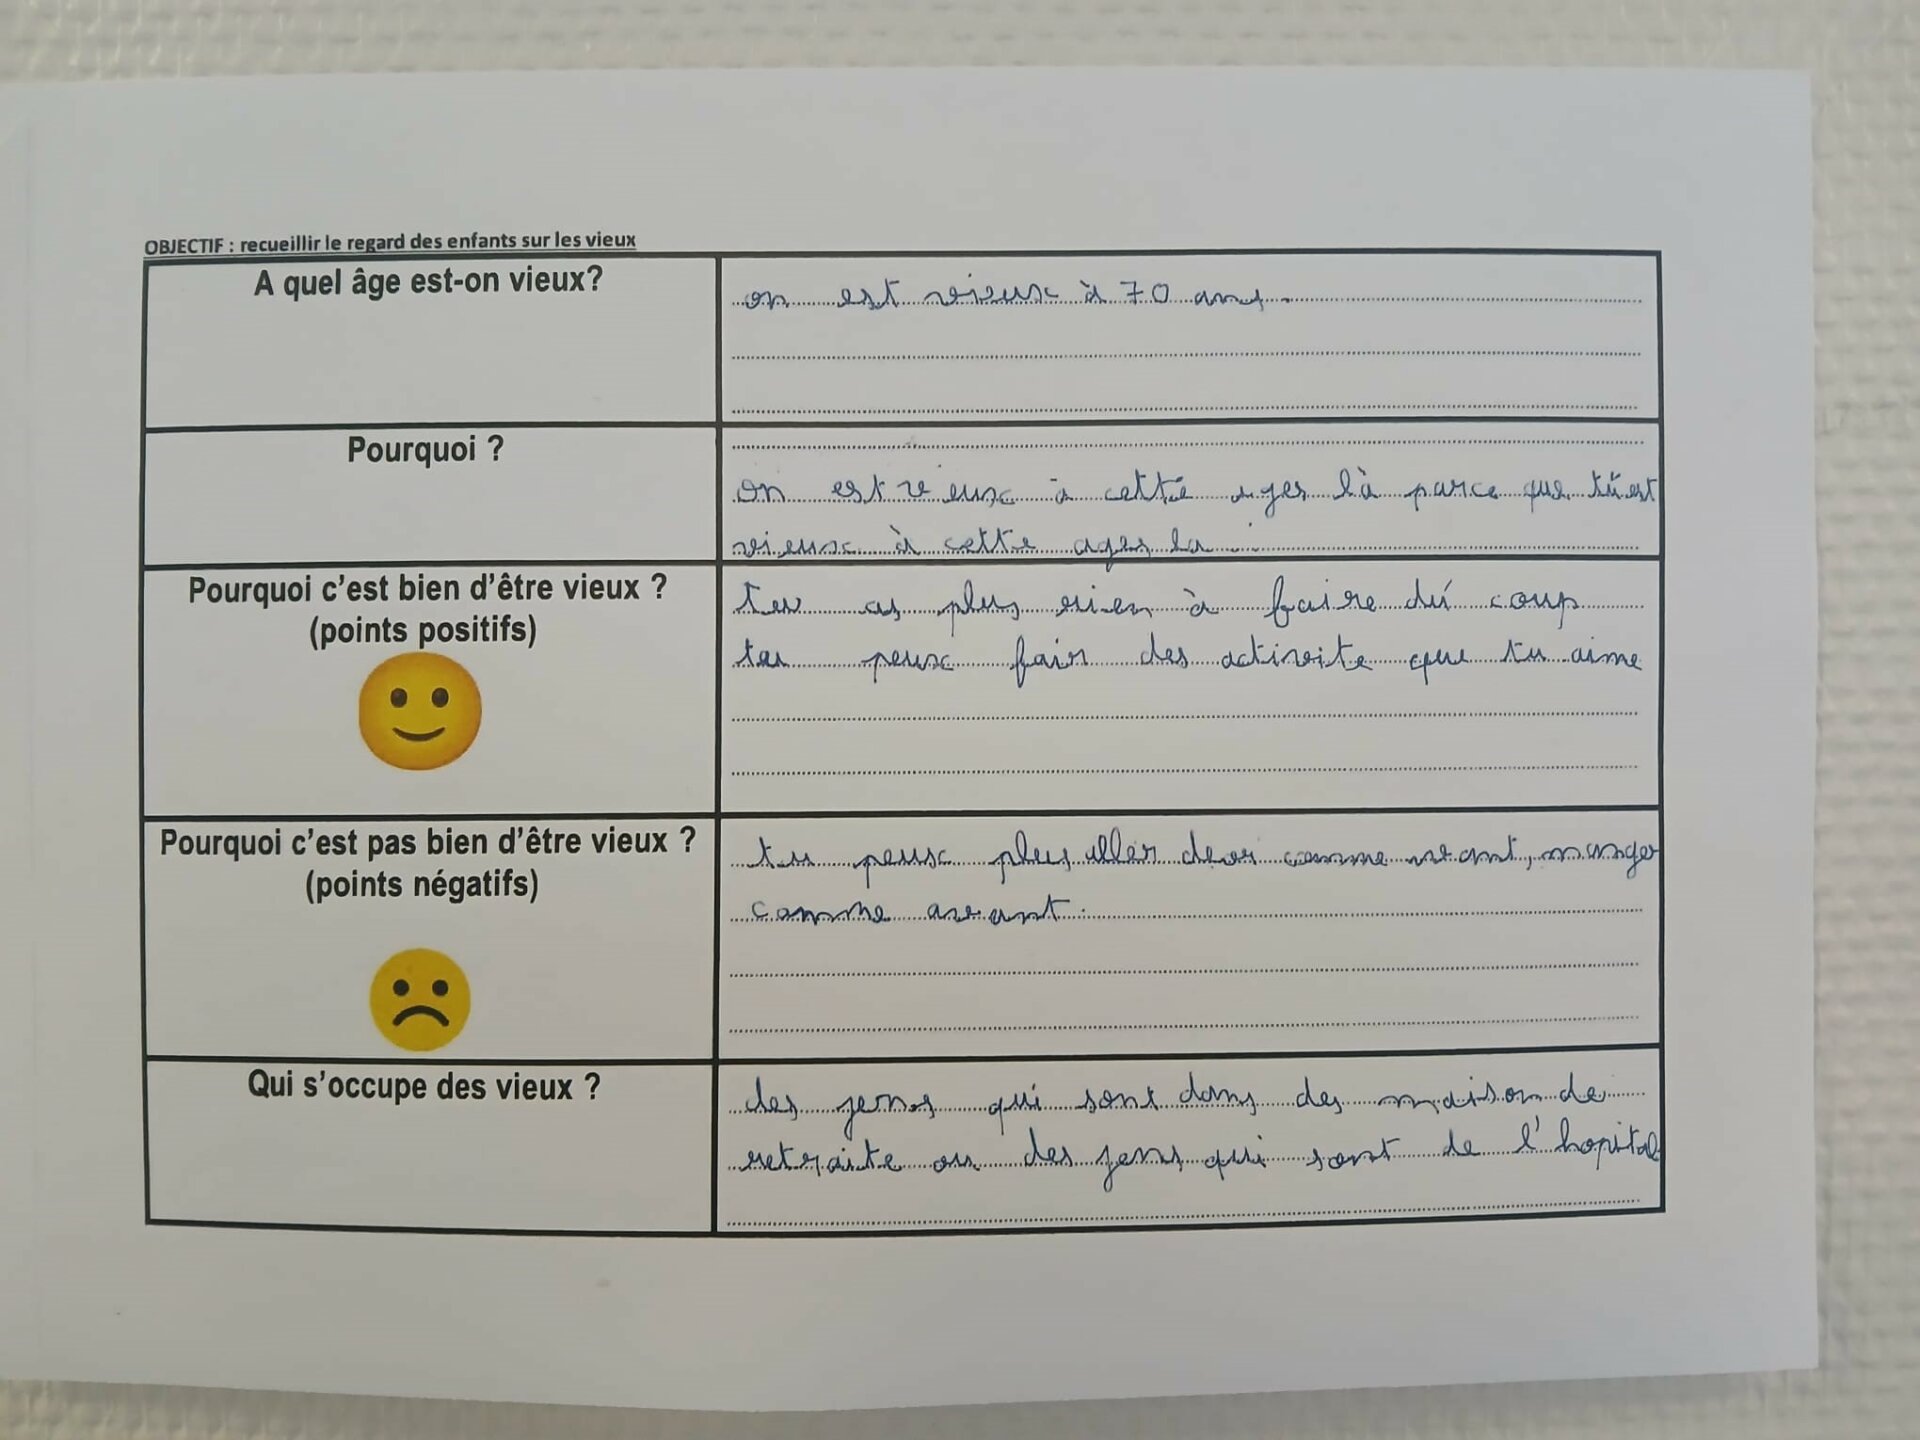 OBJECTIF : recueillir le regard des enfants sur les vieux
A quel âge est-on vieux?
on est vieux à 70 ans.
Pourquoi ?
on est vieux à cette ages là parce que tu est
vieux à cette ages la
Pourquoi c'est bien d'être vieux ?
(points positifs)
tu as plus rien à faire du coup
tu peux fair des activite que tu aime
Pourquoi c'est pas bien d'être vieux ?
(points négatifs)
tu peux plus aller deor comme avant, manger
comme avant.
Qui s'occupe des vieux ?
des jens qui sont dans des maison de
retraite ou des jens qui sont de l'hopital